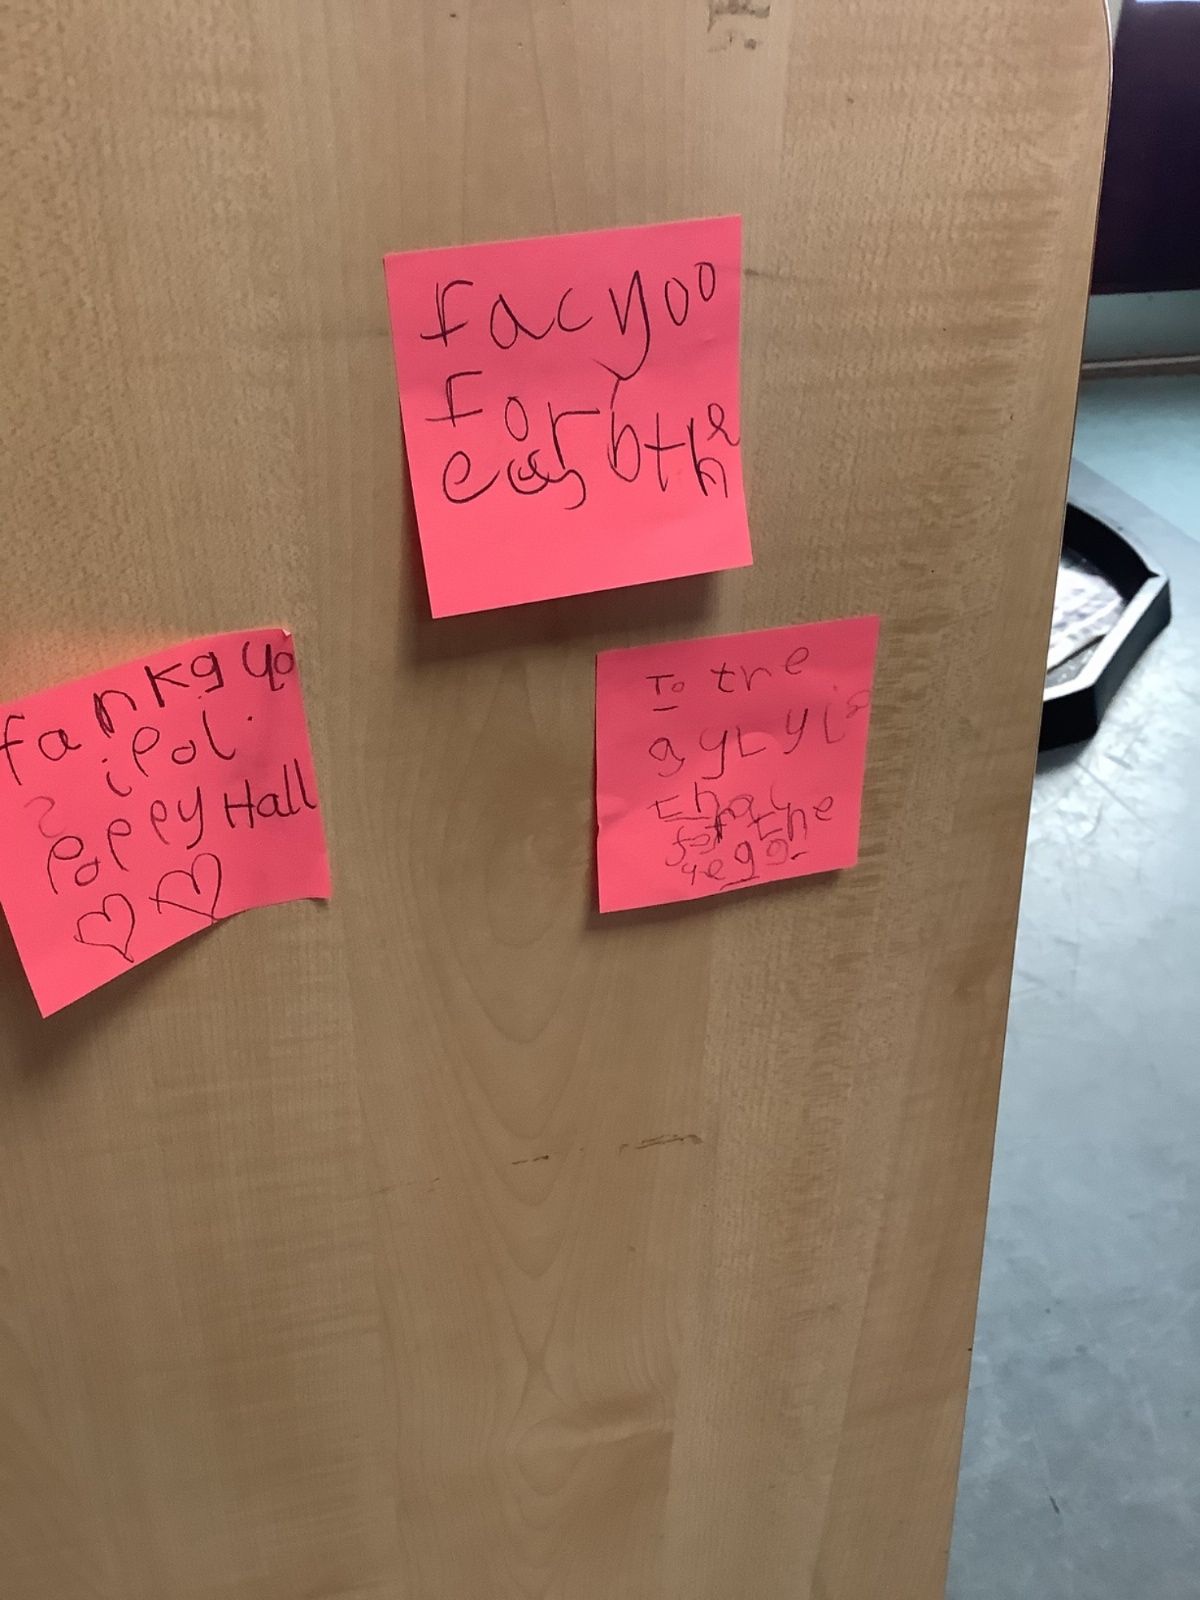 facyoo
for
eas bthe
fankg yo
ipol.
PoppeyHall
To the
gyLyis
thai
for the
egg